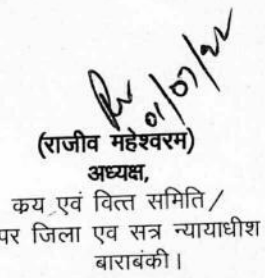 01/07/22
(राजीव महेश्वरम)
अध्यक्ष,
कय एवं वित्त समिति/
पर जिला एव सत्र न्यायाधीश
बाराबंकी।